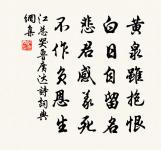 黄泉虽抱恨
白日自留名
悲君感义死
不作负恩生
江总哭鲁广达诗词典
网集